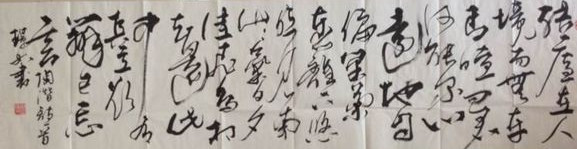 结庐在人
境而无车
马喧问君
何能尔心
远地自
偏采菊
东篱下悠
然见南
山山气日夕
佳飞鸟相
与还此
中有
真意欲
辩已忘
言陶潜诗一首